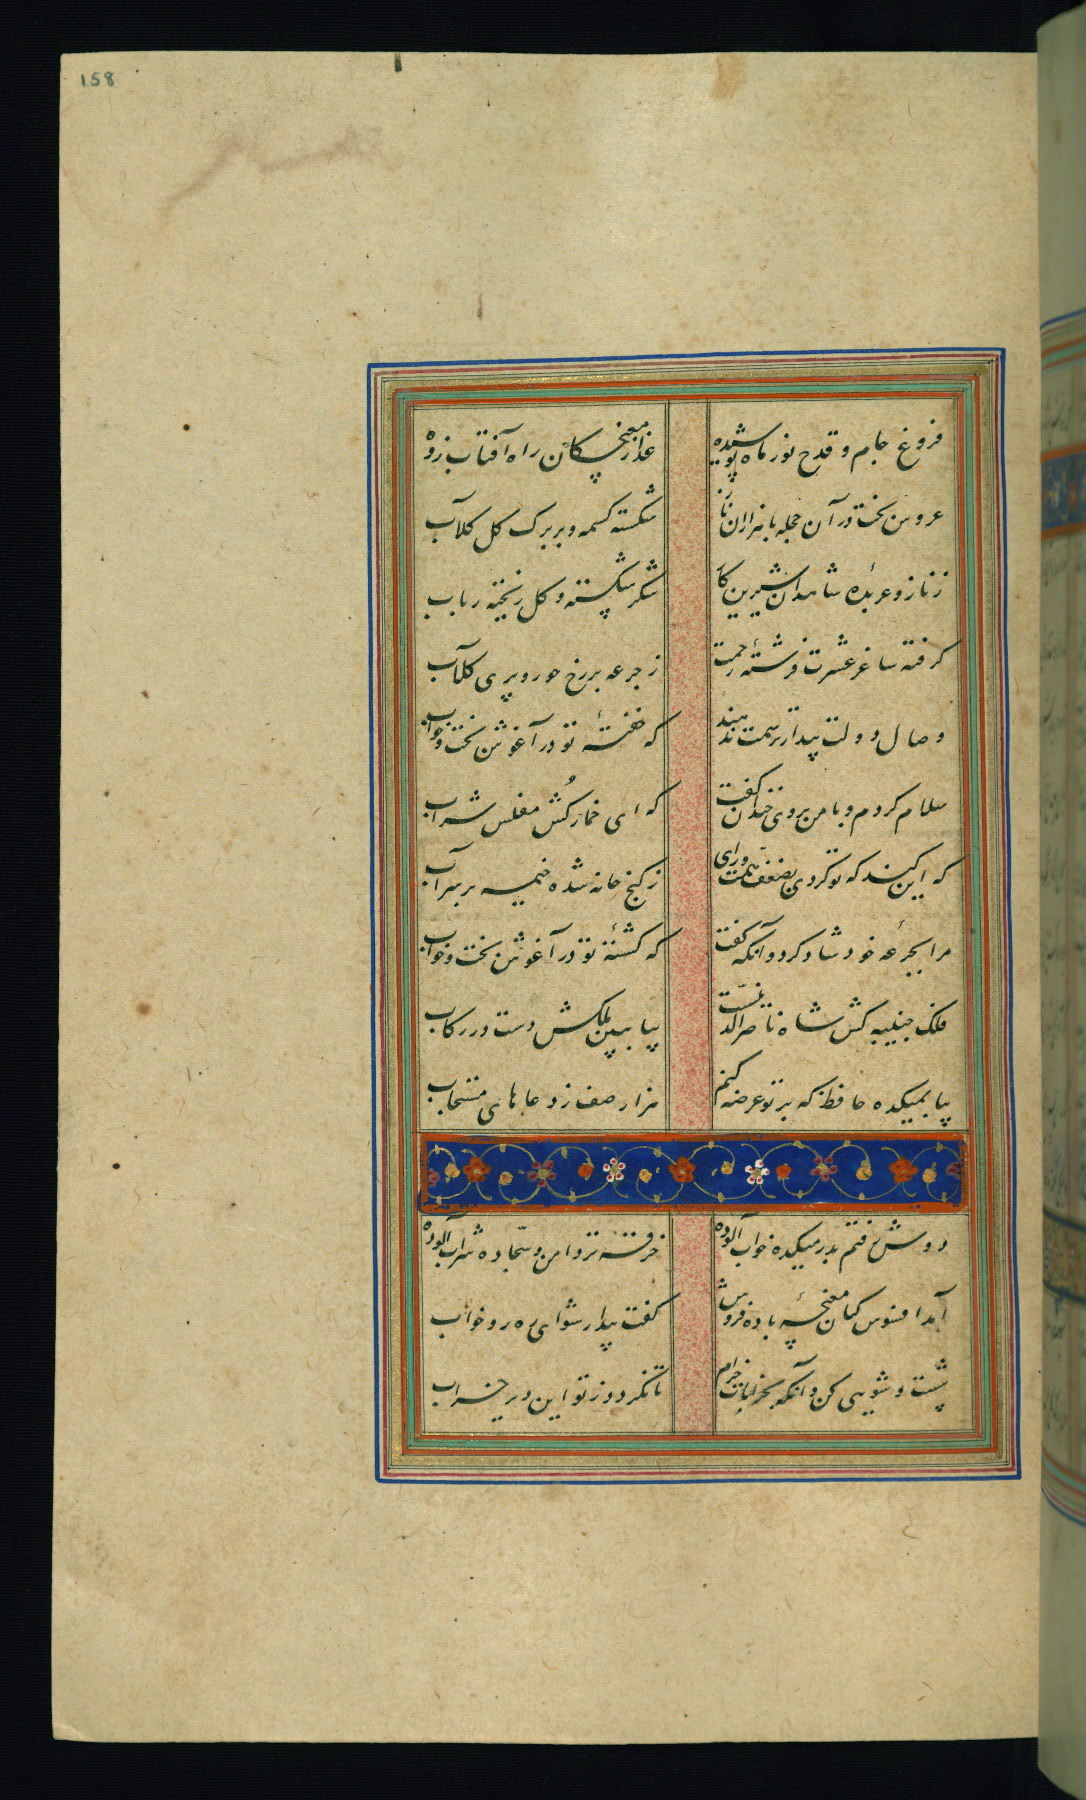 158
فروغ جام و قدح نور ماه پوشیده
عذار مغبچکان راه آفتاب زده
عروس بخت در آن حجله با هزاران ناز
شکسته کسمه و بر برک کل کلاب
ز ناز و عربدهٔ شاهدان شیرین کار
شکر شکسته و کل ریخته رباب
کرفته ساغر عشرت فرشتهٔ رحمت
ز جرعه بر رخ حور و پری کلاب
وصال دولت بیدار ترسمت ندهند
که خفتهٔ تو در آغوش بخت و خواب
سلام کردم و با من بروی خندان کفت
که ای خمارکُش مفلس شراب
که این کند که تو کردی بضعف همت و رای
ز کنج خانه شده خیمه بر سر آب
مرا بجرعهٔ خود شاد کرد و آنکه کفت
که کشتهٔ تو در آغوش بخت و خواب
فلک جنیبه کش شاه ناصرالدینست
بیا ببین ملکش دست در رکاب
بیا بمیکده حافظ که بر تو عرضه کنم
هزار صف ز دعاهای مستجاب
دوش رفتم بدر میکده خواب آلوده
خرقه تردامن و سجّاده شراب آلوده
آمد افسوس کنان مغبچهٔ باده فروش
کفت بیدار شو ای ره رو خواب
شست و شویی کن و آنکه بخرابات خرام
تا نکردد ز تو این دیر خراب